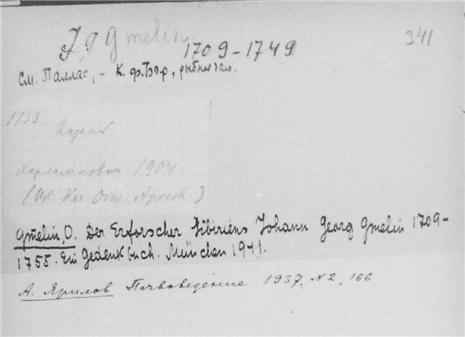 J G Gmelin
1709-1749
341
См. Паллас, - К. ф. Бэр,
1733.
Казань
Харлампович 1904
(Из. Каз. Общ. Археол.)
Gmelin, O. Der Erforscher Sibiriens Johann Georg Gmelin 1709-
1755. Ein Gedenkbuch. München 1911.
А. Ярилов Почвоведение 1937, N2, 166